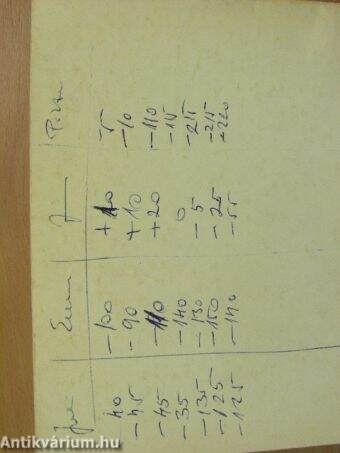 - 40 - 100 + 10 - 5
- 45 - 90 + 10 - 10
- 45 - 110 + 20 - 110
- 35 - 140 0 - 115
- 135 - 130 - 5 - 215
- 125 - 150 - 25 - 215
- 125 - 140 - 55 - 220
Antikvárium.hu